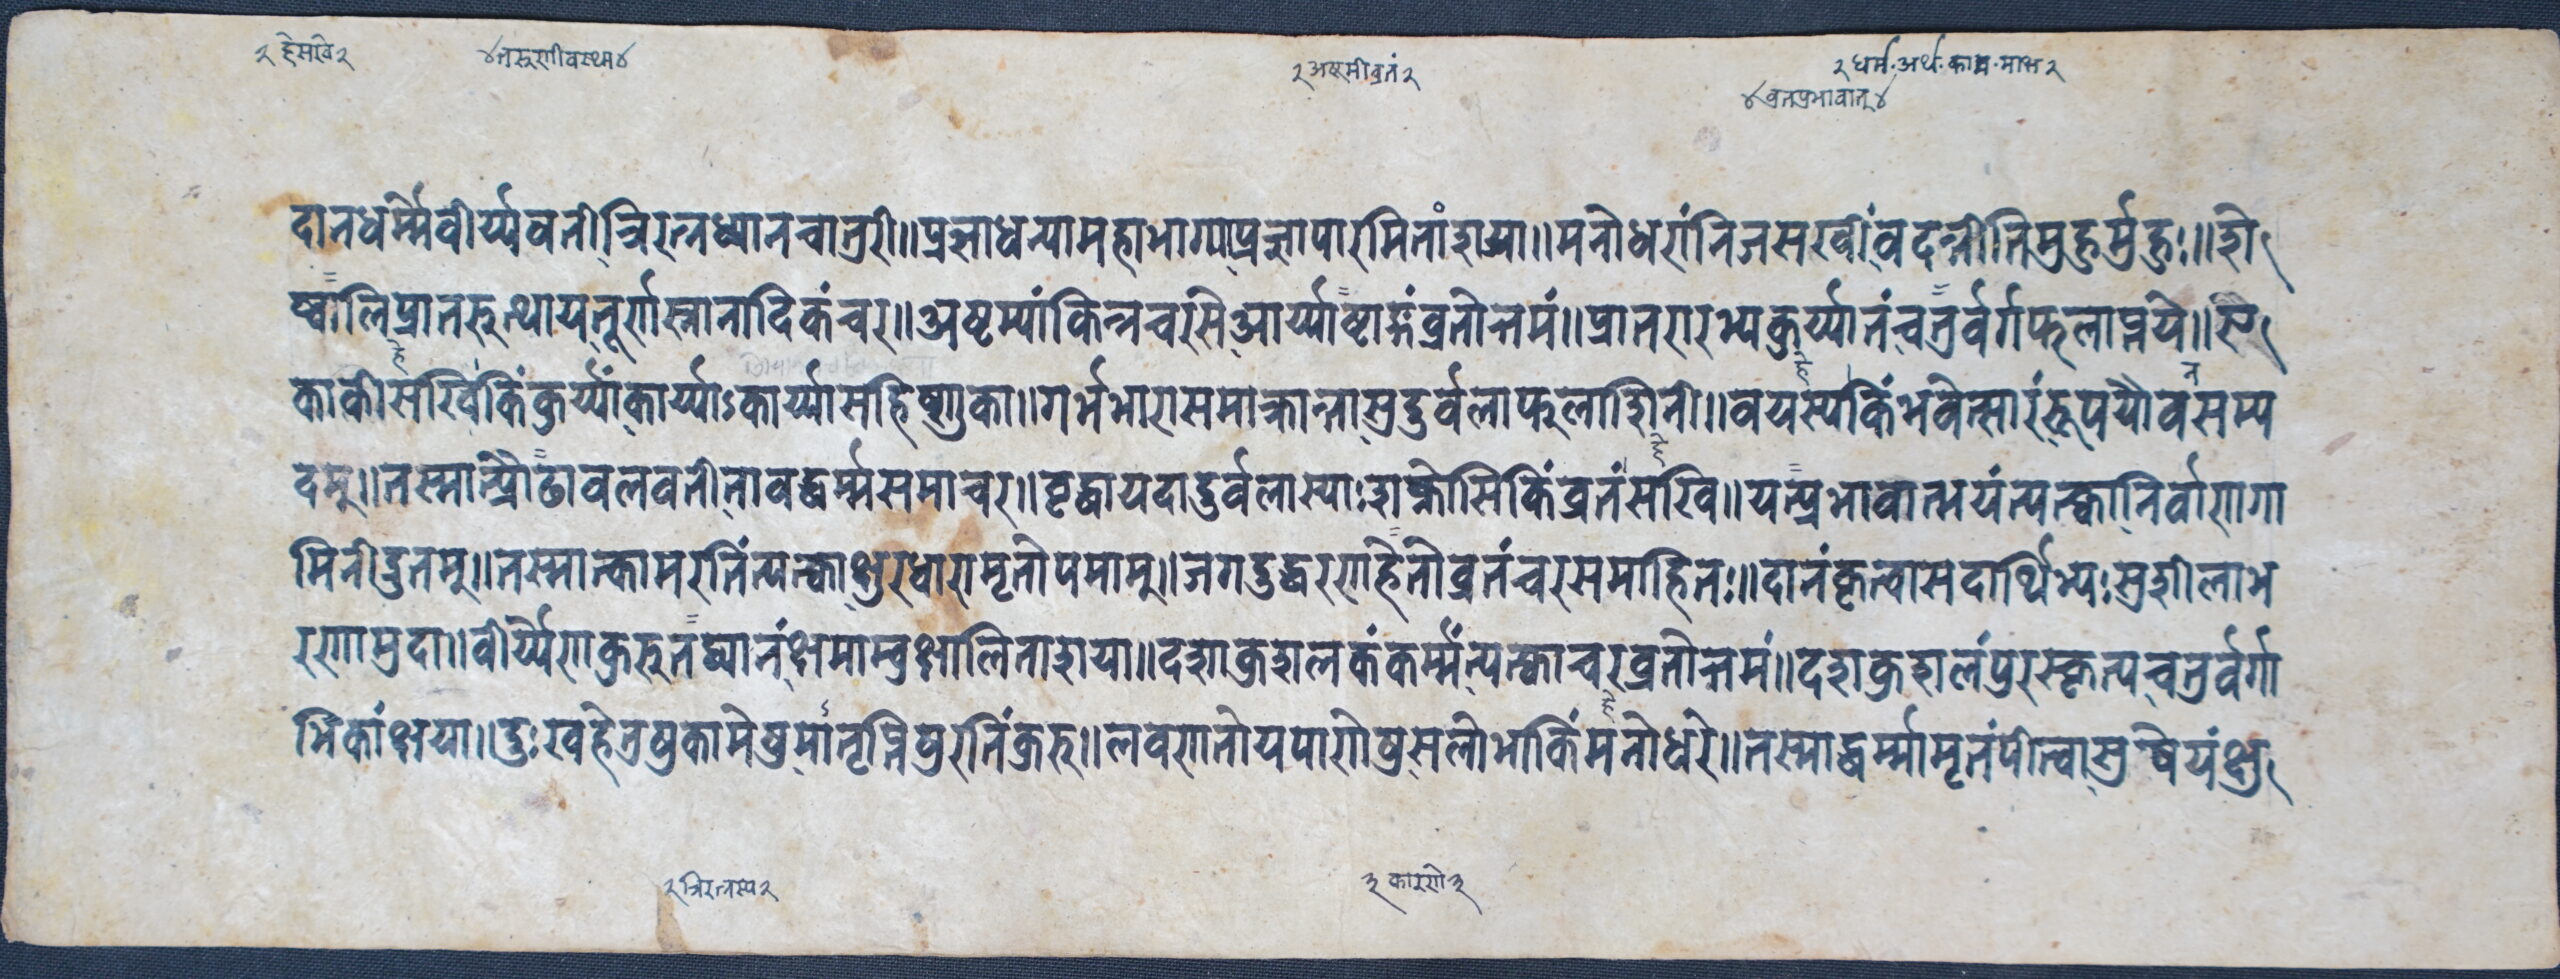 २ हेसखि २
४ तरुणीवस्था ४
२ अष्टमीव्रतं २
२ धर्म॰अर्थ॰काम॰मोक्ष २
४ व्रतप्रभावात् ४
दानधर्म्मैवीर्य्यवती त्रिरत्नध्यानचातुरी॥ प्रज्ञाधन्यामहाभाग्या प्रज्ञापारमिताशया॥ मनोधरांनिजसखीं वदन्तीतिमुहुर्मुहुः॥ शे
ष्वालि प्रातरुत्थाय तूर्णास्नानादिकंचर॥ अष्टम्यांकिन्नचरसि आर्य्याष्टाङ्गंव्रतोत्तमं॥ प्रातरारभ्यकुर्य्यातं चतुर्वर्गफलाप्तये॥
काकीसखि किंकुर्य्यां कार्य्याऽकार्य्यासहिष्णुका॥ गर्भभारासमाक्रान्ता सुदुर्वलाफलाशिनी॥ वयस्य किंभवेत्सारं रूपयौवनसम्प
दम्॥ तस्मात्प्रौढावलवती तावद्धर्म्मसमाचर॥ वृद्धायदादुर्वलास्याः शक्नोसिकिंव्रतंसखि॥ यत्प्रभावात्भयंत्यक्त्वा निर्वाणगा
मिनीद्रुतम्॥ तस्मात्कामरतिंत्यक्त्वा क्षुरधारामृतोपमाम्॥ जगदुद्धरणहेतो व्रतंचरसमाहितः॥ दानंकृत्वासदार्थिभ्यः सुशीलाभ
रणामुदा॥ वीर्य्येणकुरुतद्ध्यानं क्षमाम्बुक्षालिताशया॥ दशाकुशलकंकर्म्मं त्यक्त्वाचरव्रतोत्तमं॥ दशकुशलंपुरस्कृत्य चतुर्वर्गा
भिकांक्षया॥ दुःखहेतुषुकामेषु मातृप्तिषुरतिंकुरु॥ लवणतोयपाणीषु सलोभाकिंमनोधरे॥ तस्माद्धर्म्मामृतंपीत्वा
२ त्रिरत्नस्य २
३ कारणे ३